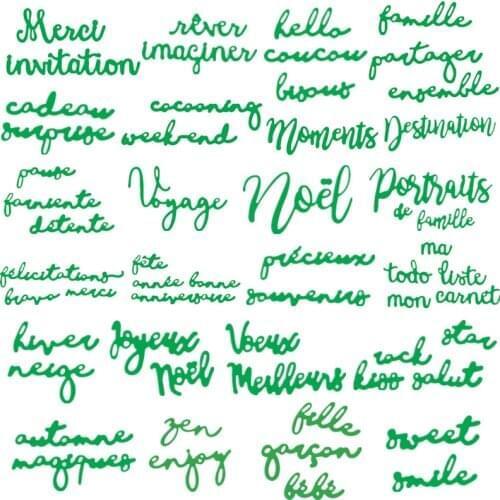 Merci
invitation
rêver
imaginer
hello
coucou
bisous
famille
partager
ensemble
cadeau
surprise
cocooning
week-end
Moments
Destination
pause
farniente
détente
Voyage
Noël
Portraits
de famille
félicitations
bravo merci
fête
année bonne
anniversaire
précieux
souvenirs
ma
todo liste
mon carnet
hiver
neige
Joyeux
Noël
Voeux
Meilleurs
star
rock
kiss salut
automne
magiques
zen
enjoy
fille
garçon
bébé
sweet
smile